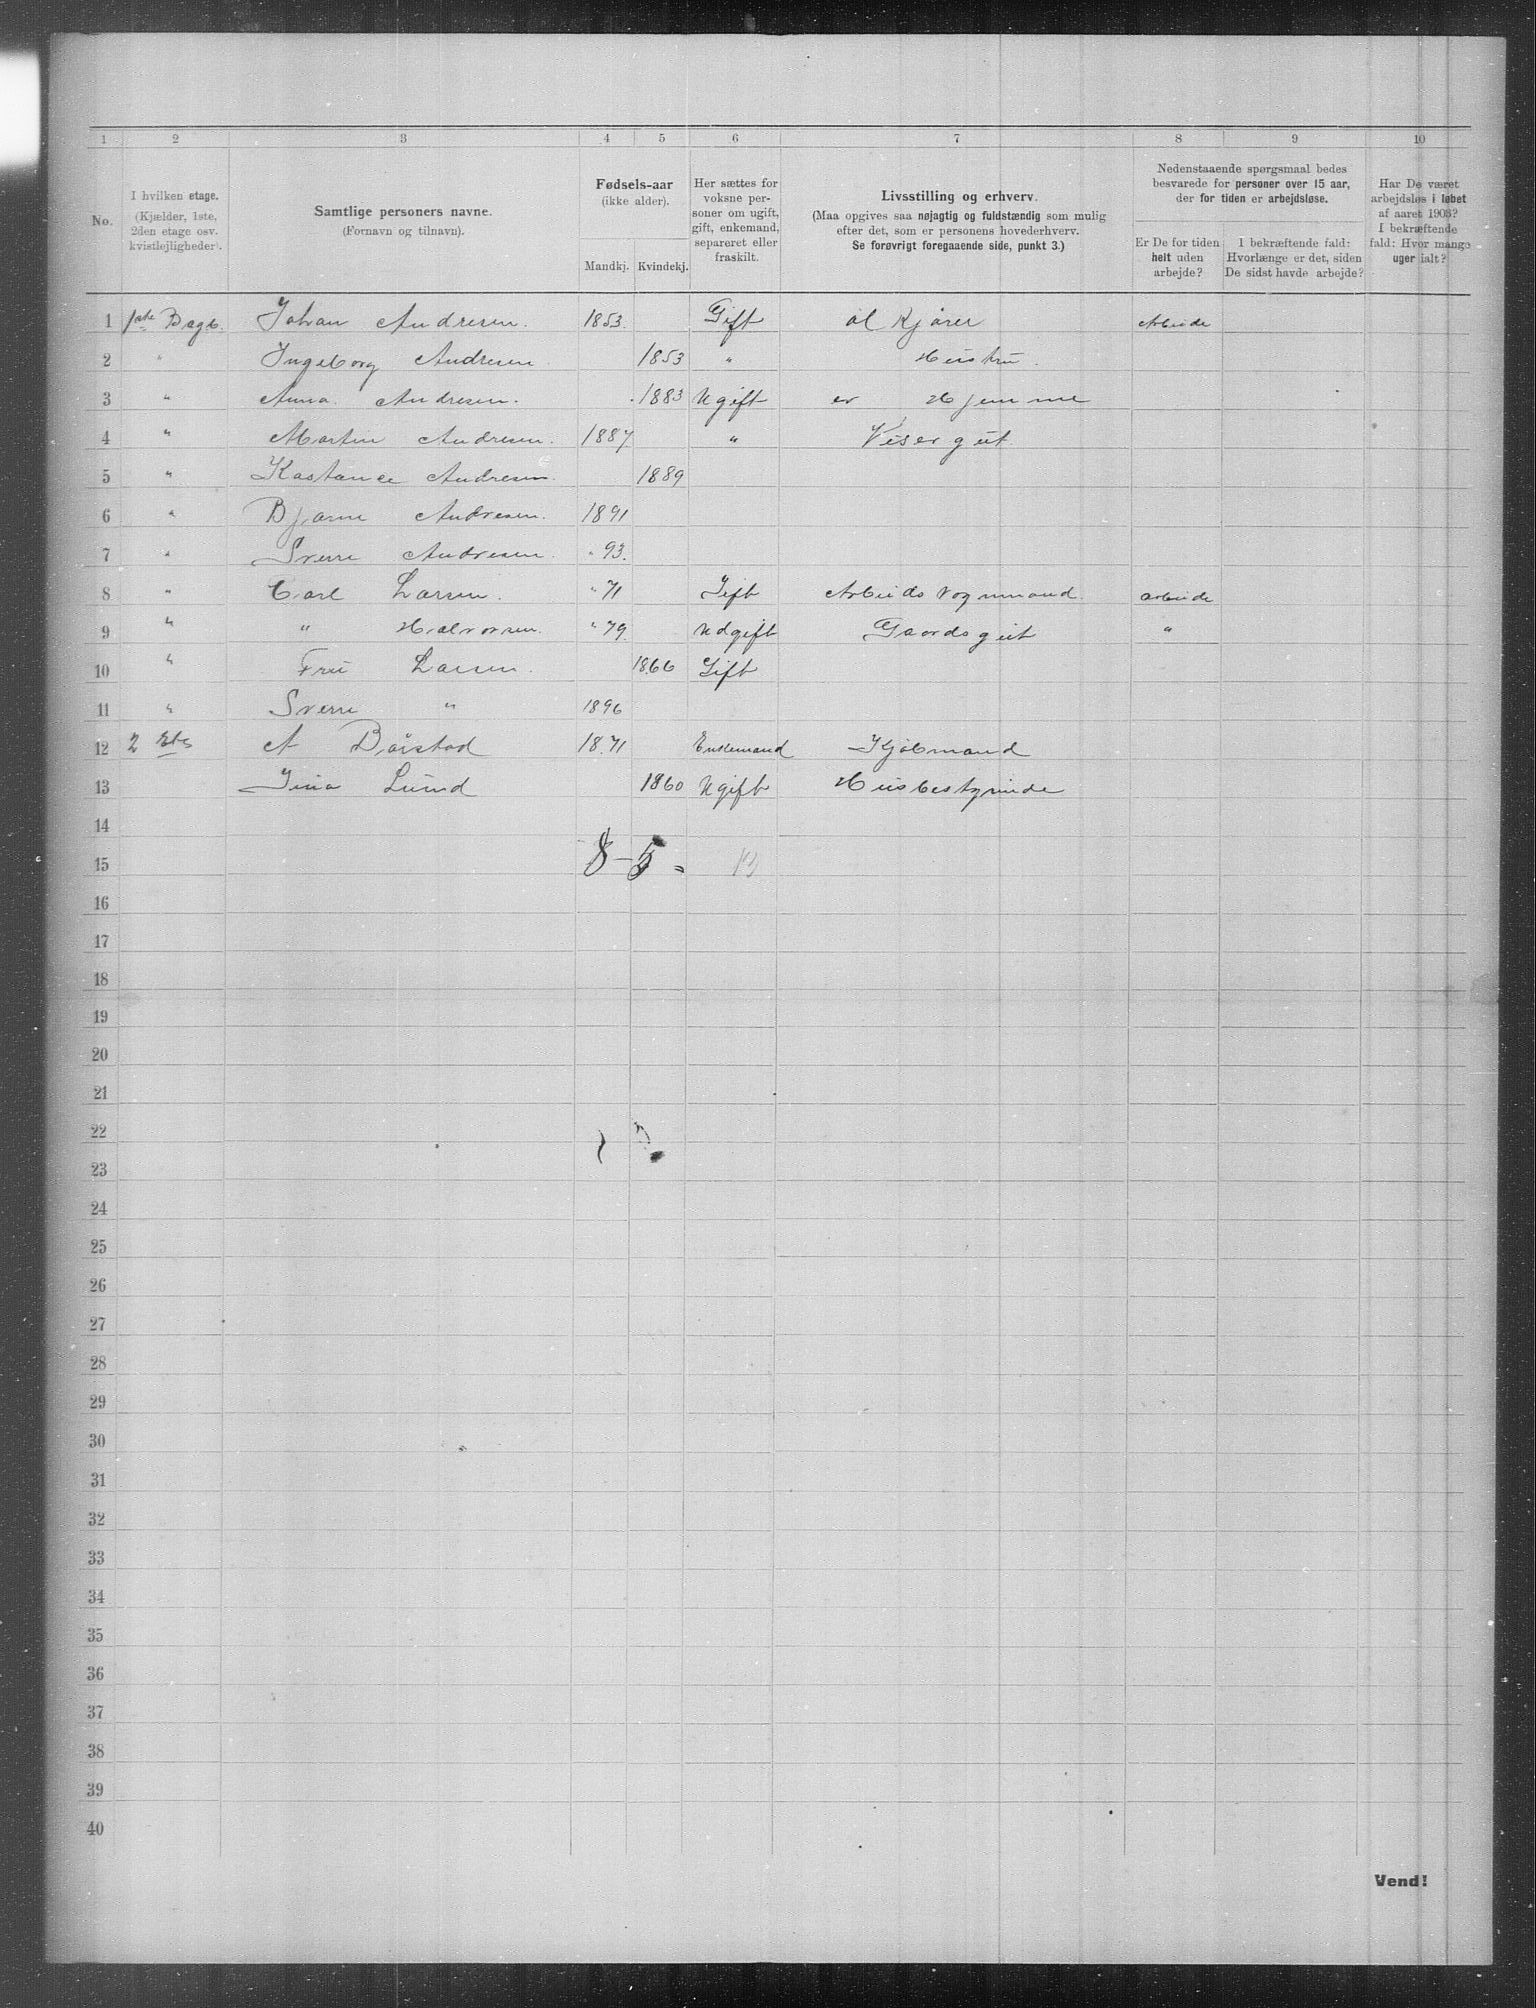 1 2 3 4 5 6 7 8 9 10
No.
I hvilken etage.
(Kjælder, 1ste,
2den etage osv.
kvistlejligheder).
Samtlige personers navne.
(Fornavn og tilnavn).
Fødsels-aar
(ikke alder).
Mandkj. Kvindekj.
Her sættes for
voksne per-
soner om ugift,
gift, enkemand,
separeret eller
fraskilt.
Livsstilling og erhverv.
(Maa opgives saa nøjagtig og fuldstændig som mulig
efter det, som er personens hovederhverv.
Se forøvrigt foregaaende side, punkt 3.)
Nedenstaaende spørgsmaal bedes
besvarede for personer over 15 aar,
der for tiden er arbejdsløse.
Er De for tiden
helt uden
arbejde?
I bekræftende fald:
Hvorlænge er det, siden
De sidst havde arbejde?
Har De været
arbejdsløs i løbet
af aaret 1903?
I bekræftende
fald: Hvor mange
uger ialt?
1 1ste Bagb. Johan Andresen. 1853. Gift øl Kjører Arbeide
2 " Ingeborg Andresen 1853 " Hustru
3 " Anna Andresen. 1883 Ugift er Hjemme
4 " Martin Andresen. 1887 " Visergut
5 " Kastance Andresen 1889
6 " Bjarne Andresen. 1891
7 " Sverre Andresen. " 93.
8 " Carl Larsen. " 71 Gift Arbeids Vognmand. arbeide
9 " " Halvorsen. " 79 Udgift Gaardsgut "
10 " Fru Larsen. 1866 Gift
11 " Sverre " 1896
12 2 Etg A Børstad 1871 Enkemand Kjøbmand
13 Lund 1860 Ugift Husbestyrinde
14
15 8-5= 13
16
17
18
19
20
21
22
23
24
25
26
27
28
29
30
31
32
33
34
35
36
37
38
39
40
Vend!